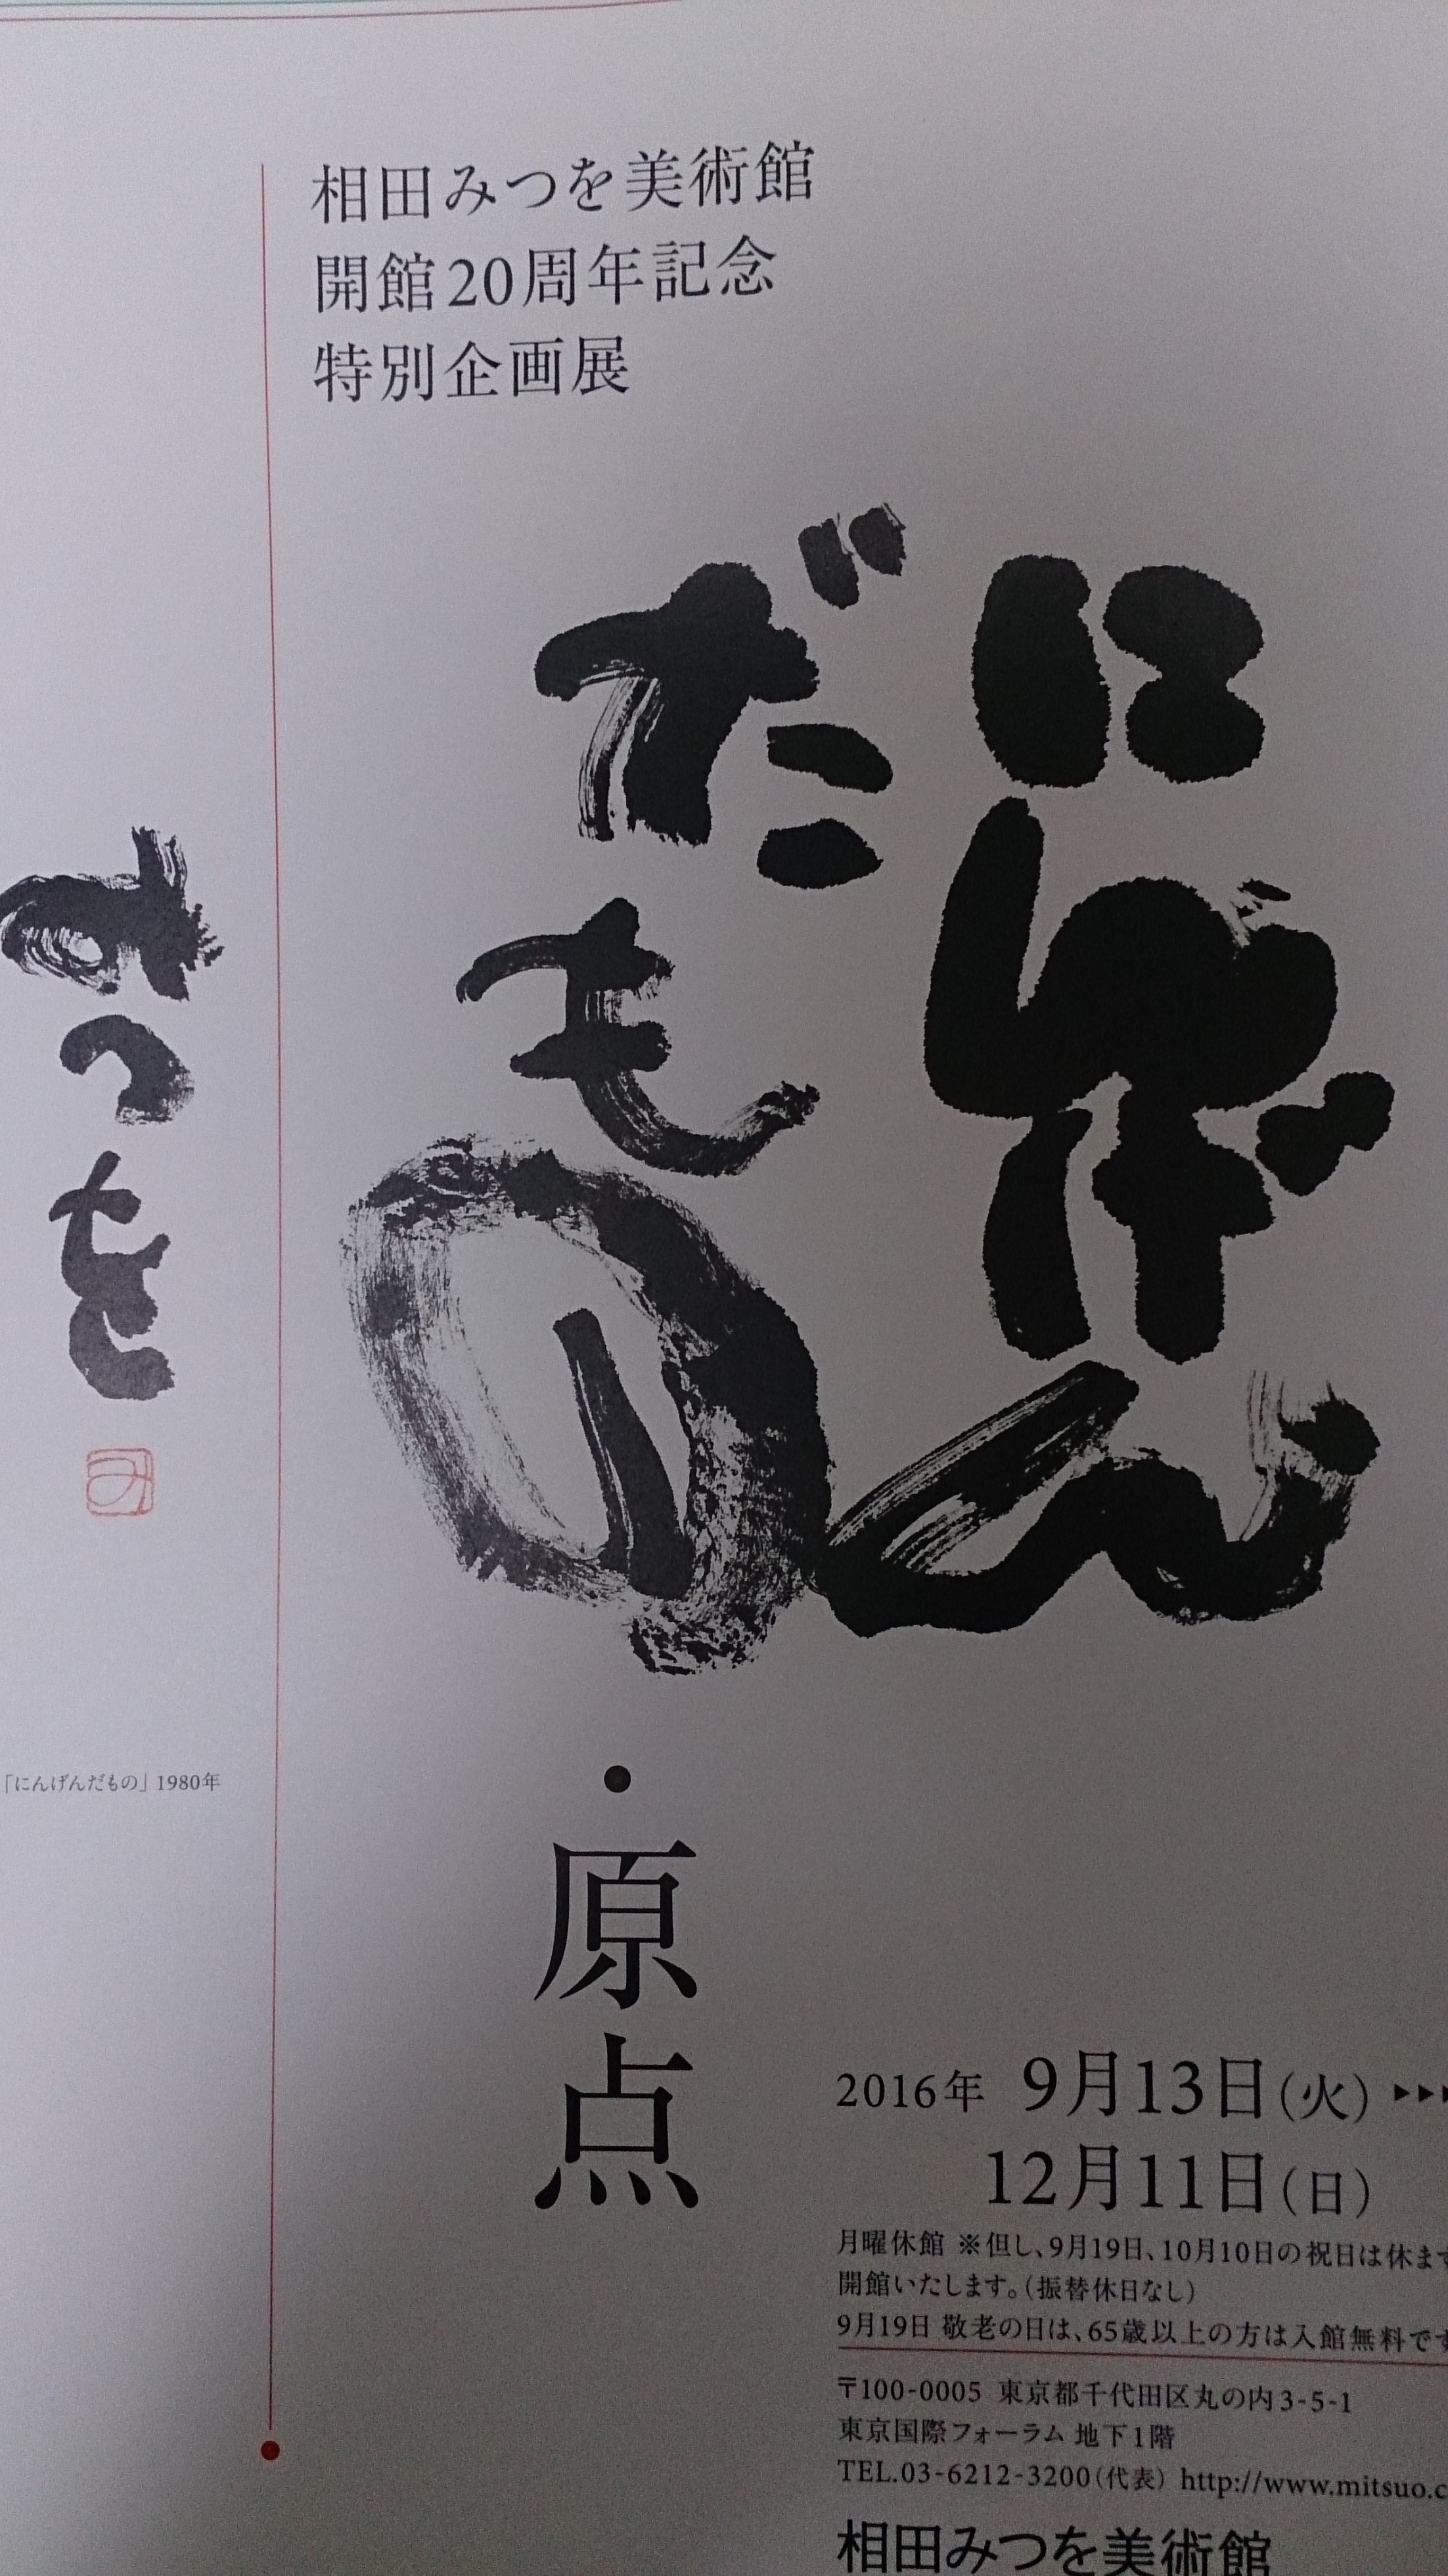 相田みつを美術館
開館20周年記念
特別企画展
にんげん
だもの
・原点
みつを
み
「にんげんだもの」1980年
2016年 9月13日(火)▶▶▶
12月11日(日)
月曜休館 ※但し、9月19日、10月10日の祝日は休ます
開館いたします。(振替休日なし)
9月19日 敬老の日は、65歳以上の方は入館無料です
〒100-0005 東京都千代田区丸の内3-5-1
東京国際フォーラム 地下1階
TEL.03-6212-3200(代表) http://www.mitsuo.c
相田みつを美術館